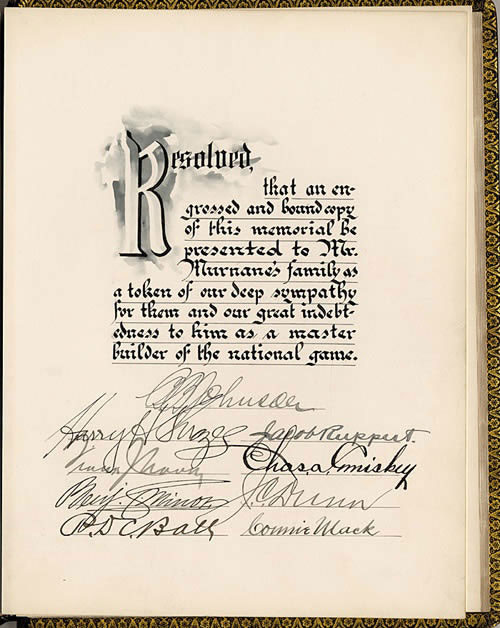 Resolved,
that an en-
grossed and bound copy
of this memorial be
presented to Mr.
Murnane's family as
a token of our deep sympathy
for them and our great indebt-
edness to him as a master
builder of the national game.
B B Johnson
Harry Jacob Ruppert.
Chas. A. Comiskey
Benj. S. Minor J. C. Dunn
P. D. C. Ball Connie Mack